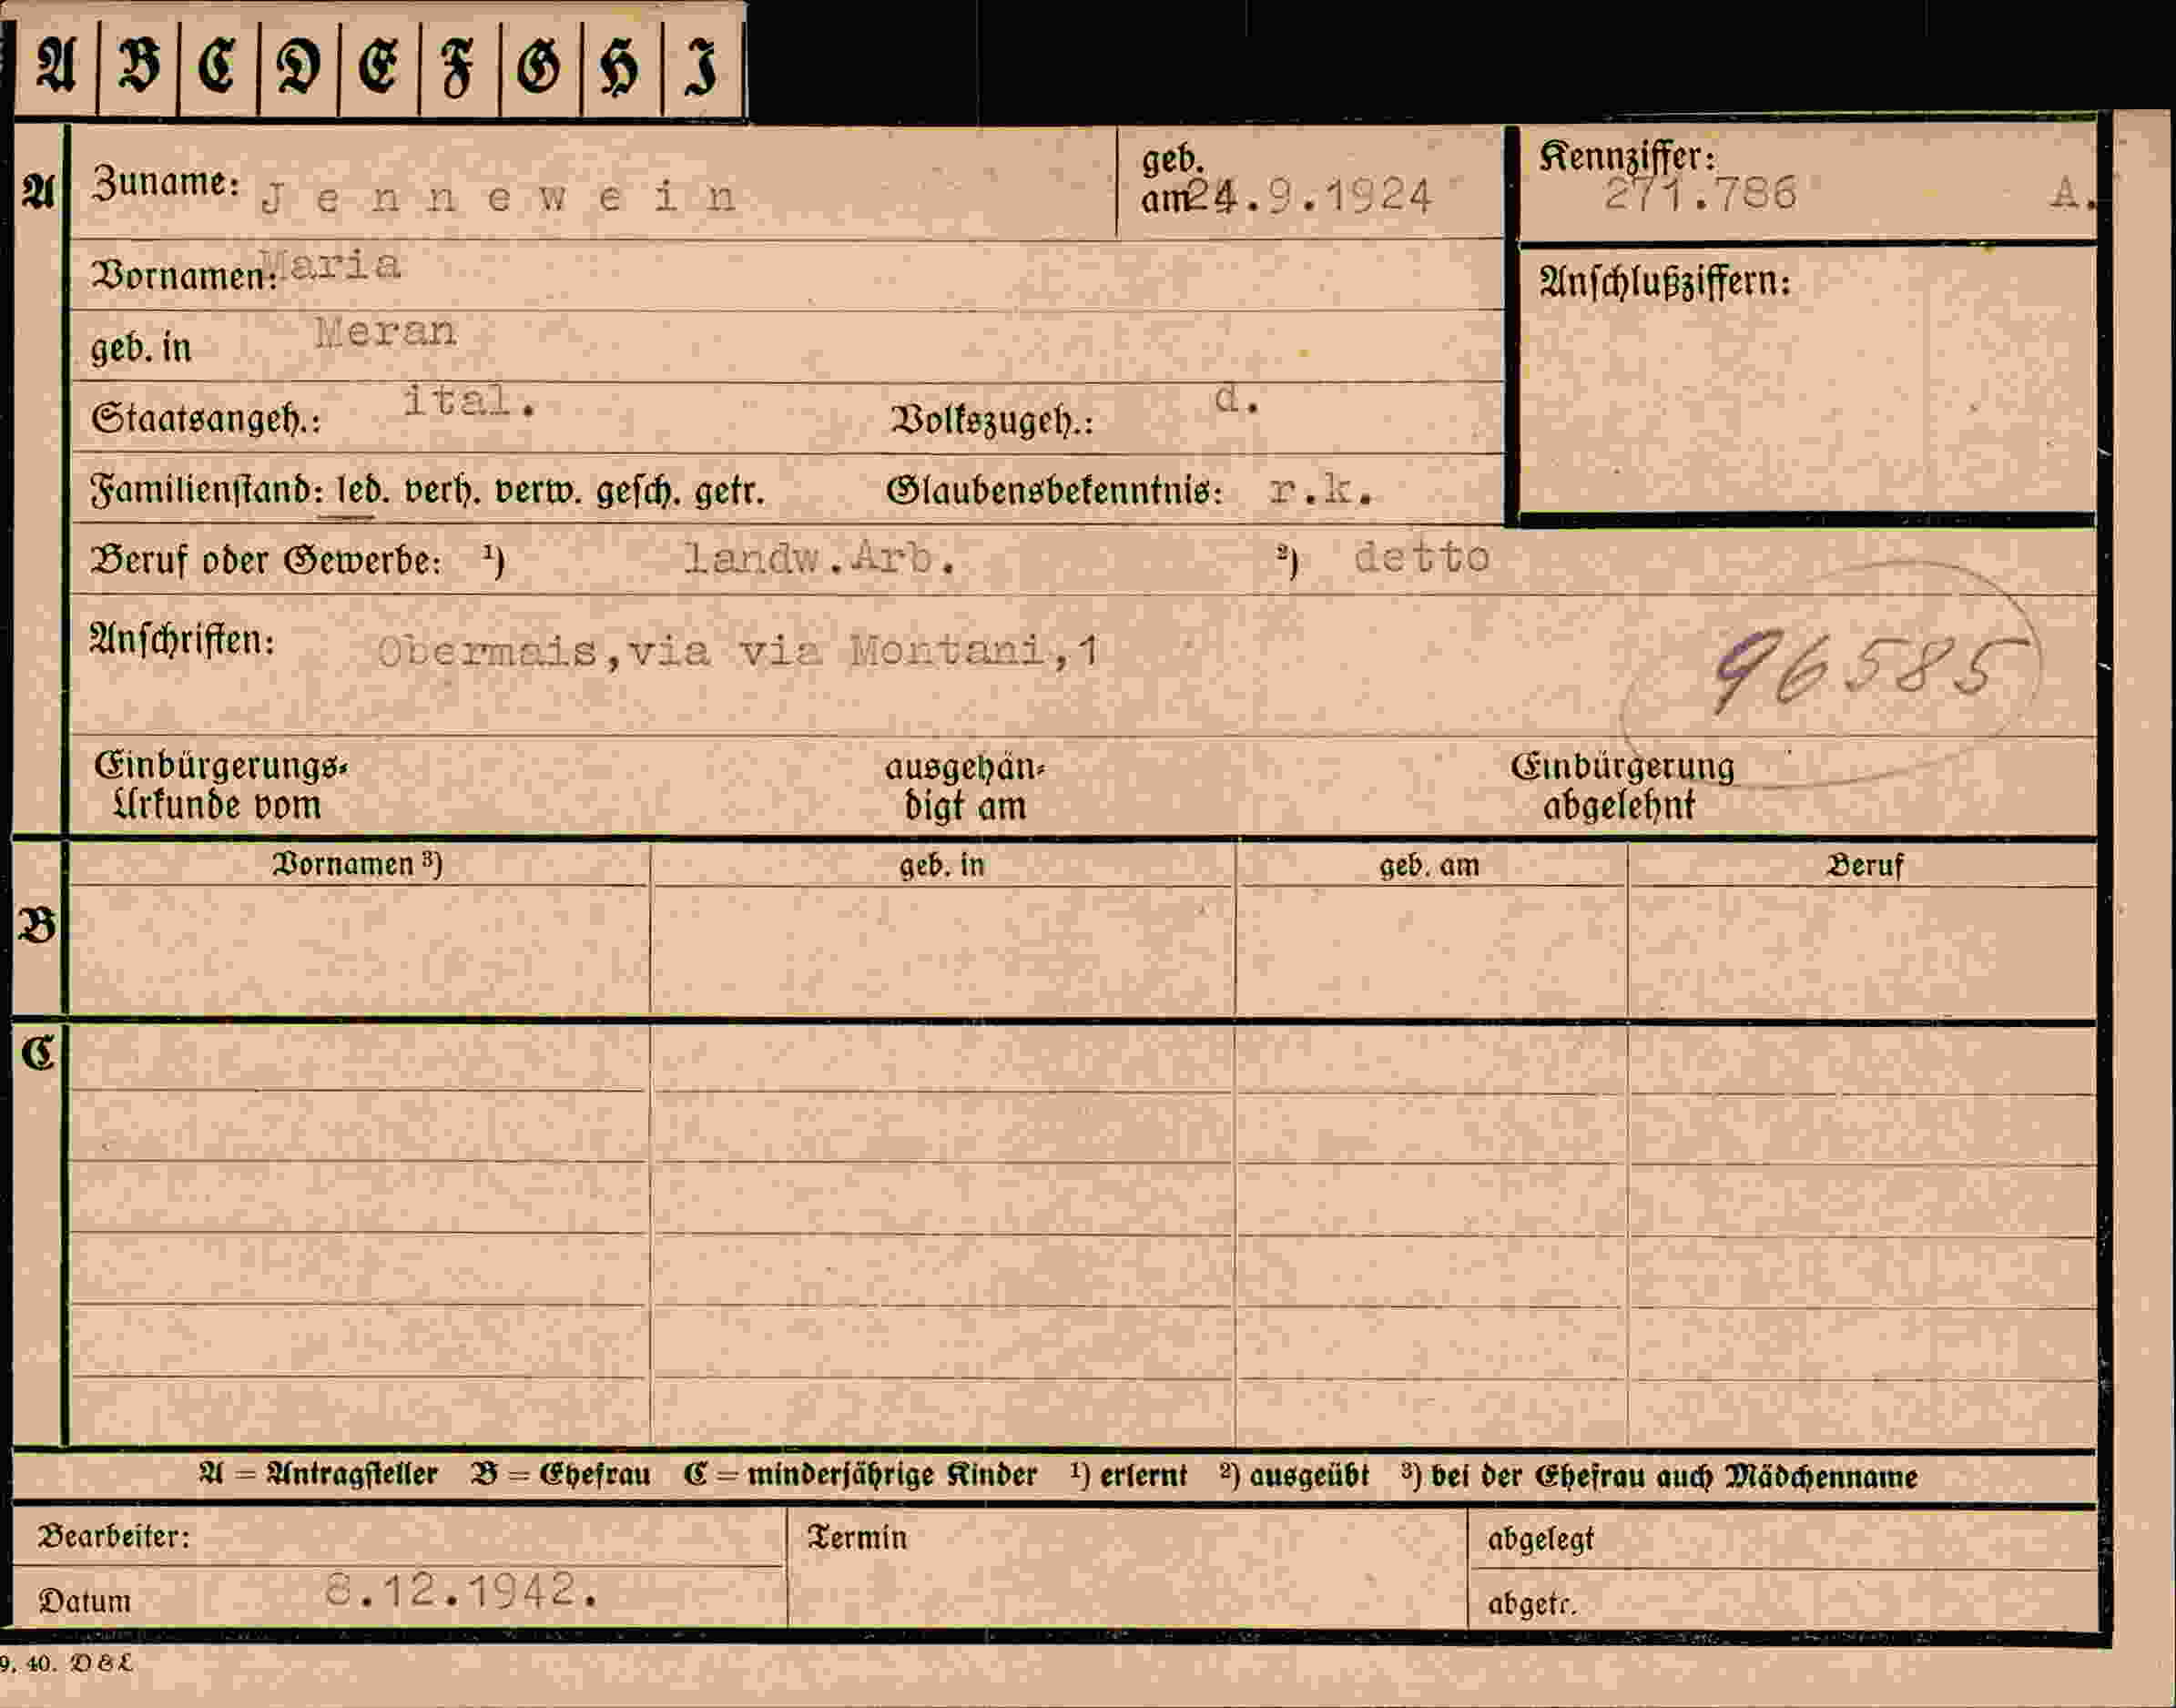 A B C D E F G H I
A Zuname: Jennewein geb. am 24.9.1924 Kennziffer: 271.786 A.
Vornamen: Maria Anschlußziffern:
geb. in Meran
Staatsangeh.: ital. Volkszugeh.: d.
Familienstand: led. verh. verw. gesch. getr. Glaubensbekenntnis: r.k.
Beruf oder Gewerbe: ¹) landw.Arb. ²) detto
Anschriften: Obermais,via via Montani,1 96585
Einbürgerungs- ausgehän- Einbürgerung
Urkunde vom digt am abgelehnt
Vornamen ³) geb. in geb. am Beruf
B
C
A = Antragsteller B = Ehefrau C = minderjährige Kinder ¹) erlernt ²) ausgeübt ³) bei der Ehefrau auch Mädchenname
Bearbeiter: Termin abgelegt
Datum 8.12.1942. abgetr.
9. 40. D & L